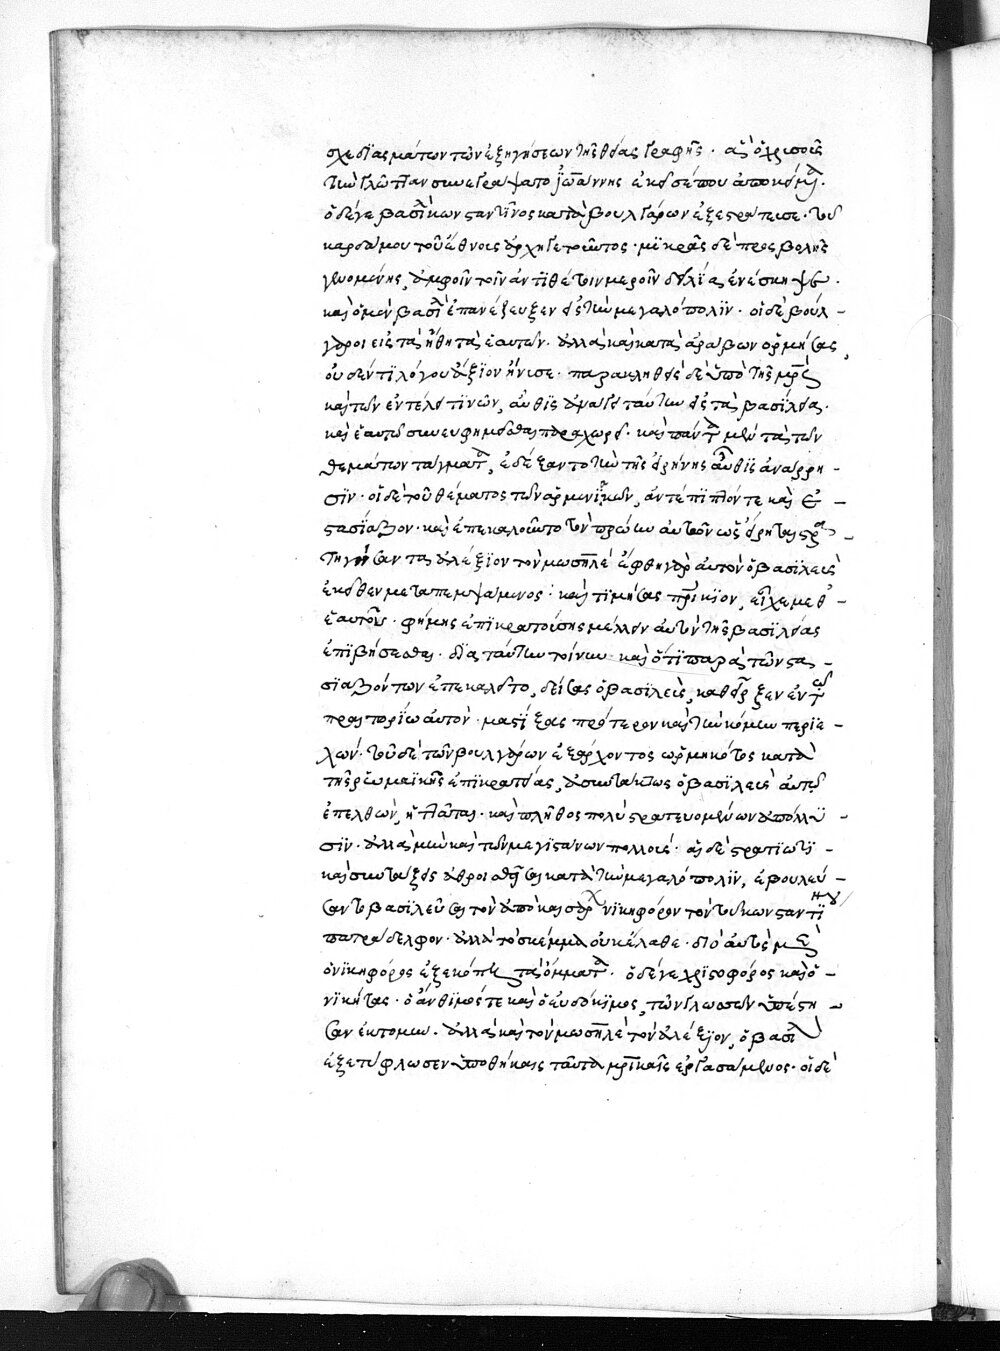 σχεδιασμάτων τῶν ἐξηγήσεων τῆς θείας γραφῆς. ἃς ὁ χρυσοῦς
τὴν γλῶτταν συνεγράψατο ἰωάννης ἐκεῖσέ που ἀποκείμ.
ὁ δέ γε βασι κωνσταντῖνος κατὰ βουλγάρων ἐξεστράτευσε. τοῦ
καρδάμου τοῦ ἔθνους ἀρχηγετοῦντος. μικρᾶς δὲ προσβολῆς
γενομένης, ἀμφοῖν τοῖν ἀντιθέτοιν μεροῖν δειλίας ἐνέσκηψε.
καὶ ὁ μὲν βασι ἐπανέζευξεν εἰς τὴν μεγαλόπολιν. οἱ δὲ βούλ-
γαροι εἰς τὰ ἤθη τὰ ἑαυτῶν. ἀλλὰ καὶ κατὰ ἀράβων ὁρμήσας,
οὐδέν τι λόγου ἄξιον ἤνυσε. παρακληθεὶς δὲ ὑπὸ τῆς μρς
καὶ τῶν ἐν τέλει τινῶν, αὖθις ἀνάγει ταύτην εἰς τὰ βασίλεια.
καὶ ἑαυτῷ συνευφημεῖσθαι παραχωρεῖ. καὶ πάντα μὲν τὰ τῶν
θεμάτων τάγματα, ἐδέξαντο τὴν τῆς εἰρήνης αὖθις ἀνάρρη-
σιν. οἱ δὲ τοῦ θέματος τῶν ἀρμενικῶν, ἀντέπιπτόν τε καὶ ἐ-
στασίαζον. καὶ ἐπεκαλοῦντο τὸν πρώην αὐτῶν ὡς εἴρηται στρα-
τηγήσαντα ἀλέξιον τὸν μωσηλέ. ἔφθη γὰρ αὐτὸν ὁ βασιλεὺς
ἐκεῖθεν μεταπεμψάμενος. καὶ τιμήσας πρικιον, εἶχε μεθ᾽-
ἑαυτοῦ. φήμης ἐπικρατούσης μέλλειν αὐτὸν τῆς βασιλείας
ἐπιβήσεσθαι. διὰ ταύτην τοίνυν καὶ ὅτι παρὰ τῶν στα-
σιαζόντων ἐπεκαλεῖτο, δείσας ὁ βασιλεὺς, καθεῖρξεν ἐν τῷ
πραιτορίῳ αὐτὸν. μαστίξας πρότερον καὶ τὴν κόμην περιε-
λών. τοῦ δὲ τῶν βουλγάρων ἐξάρχοντος ὡρμηκότος κατὰ
τῆς ῥωμαϊκῆς ἐπικρατείας, ἀσυντάκτως ὁ βασιλεὺς αὐτῷ
ἐπελθὼν, ἥττηται. καὶ πλῆθος πολὺ στρατευομένων ἀπόλλυ-
σιν. ἀλλὰ μὴν καὶ τῶν μεγιστάνων πολλούς. αἱ δὲ στρατιωτι-
καὶ συντάξεις ἀθροισθεῖσαι κατὰ τὴν μεγαλόπολιν, ἐβουλεύ-
σαντο βασιλεῦσαι τὸν ἀπὸ καισάρων νικηφόρον τὸν τοῦ κωνσταντίνου
πατράδελφον. ἀλλὰ τὸ σκέμμα οὐκ ἔλαθε. διὸ αὐτὸς μὲν
ὁ νικηφόρος ἐξεκόπη τὰ ὄμματα. ὁ δέ γε χριστοφόρος καὶ ὁ-
νικήτας. ὁ ἄνθιμός τε καὶ ὁ εὐδόκιμος, τῶν γλωσσῶν ὑπέστη-
σαν ἐκτομήν. ἀλλὰ καὶ τὸν μωσηλὲ τὸν ἀλέξιον, ὁ βασι
ἐξετύφλωσεν ὑποθήκαις ταῦτα μρικαῖς ἐργασάμενος. οἱ δὲ